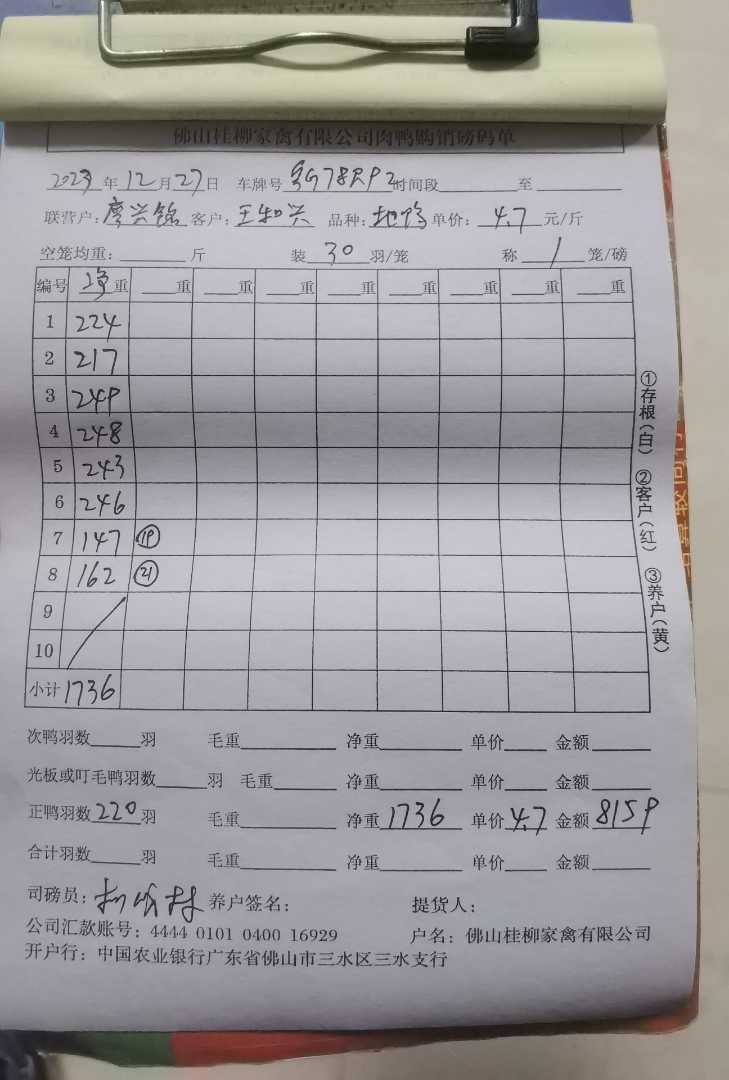 佛山桂柳家禽有限公司肉鸭购销磅码单
2023年12月27日 车牌号 78RP2 时间段 至
联营户:廖兴铭 客户:王和兴 品种: 单价:4.7元/斤
空笼均重: 斤 装30羽/笼 称1笼/磅
编号 净重 重 重 重 重 重 重 重 重
1 224
2 217
3 249
4 248
5 243
6 246
7 147 ⑲
8 162 ㉑
9
10
小计 1736
次鸭羽数 羽 毛重 净重 单价 金额
光板或叮毛鸭羽数 羽 毛重 净重 单价 金额
正鸭羽数220羽 毛重 净重1736 单价4.7 金额8159
合计羽数 羽 毛重 净重 单价 金额
司磅员: 养户签名: 提货人:
公司汇款账号:4444 0101 0400 16929 户名:佛山桂柳家禽有限公司
开户行:中国农业银行广东省佛山市三水区三水支行
①存根(白) ②客户(红) ③养户(黄)